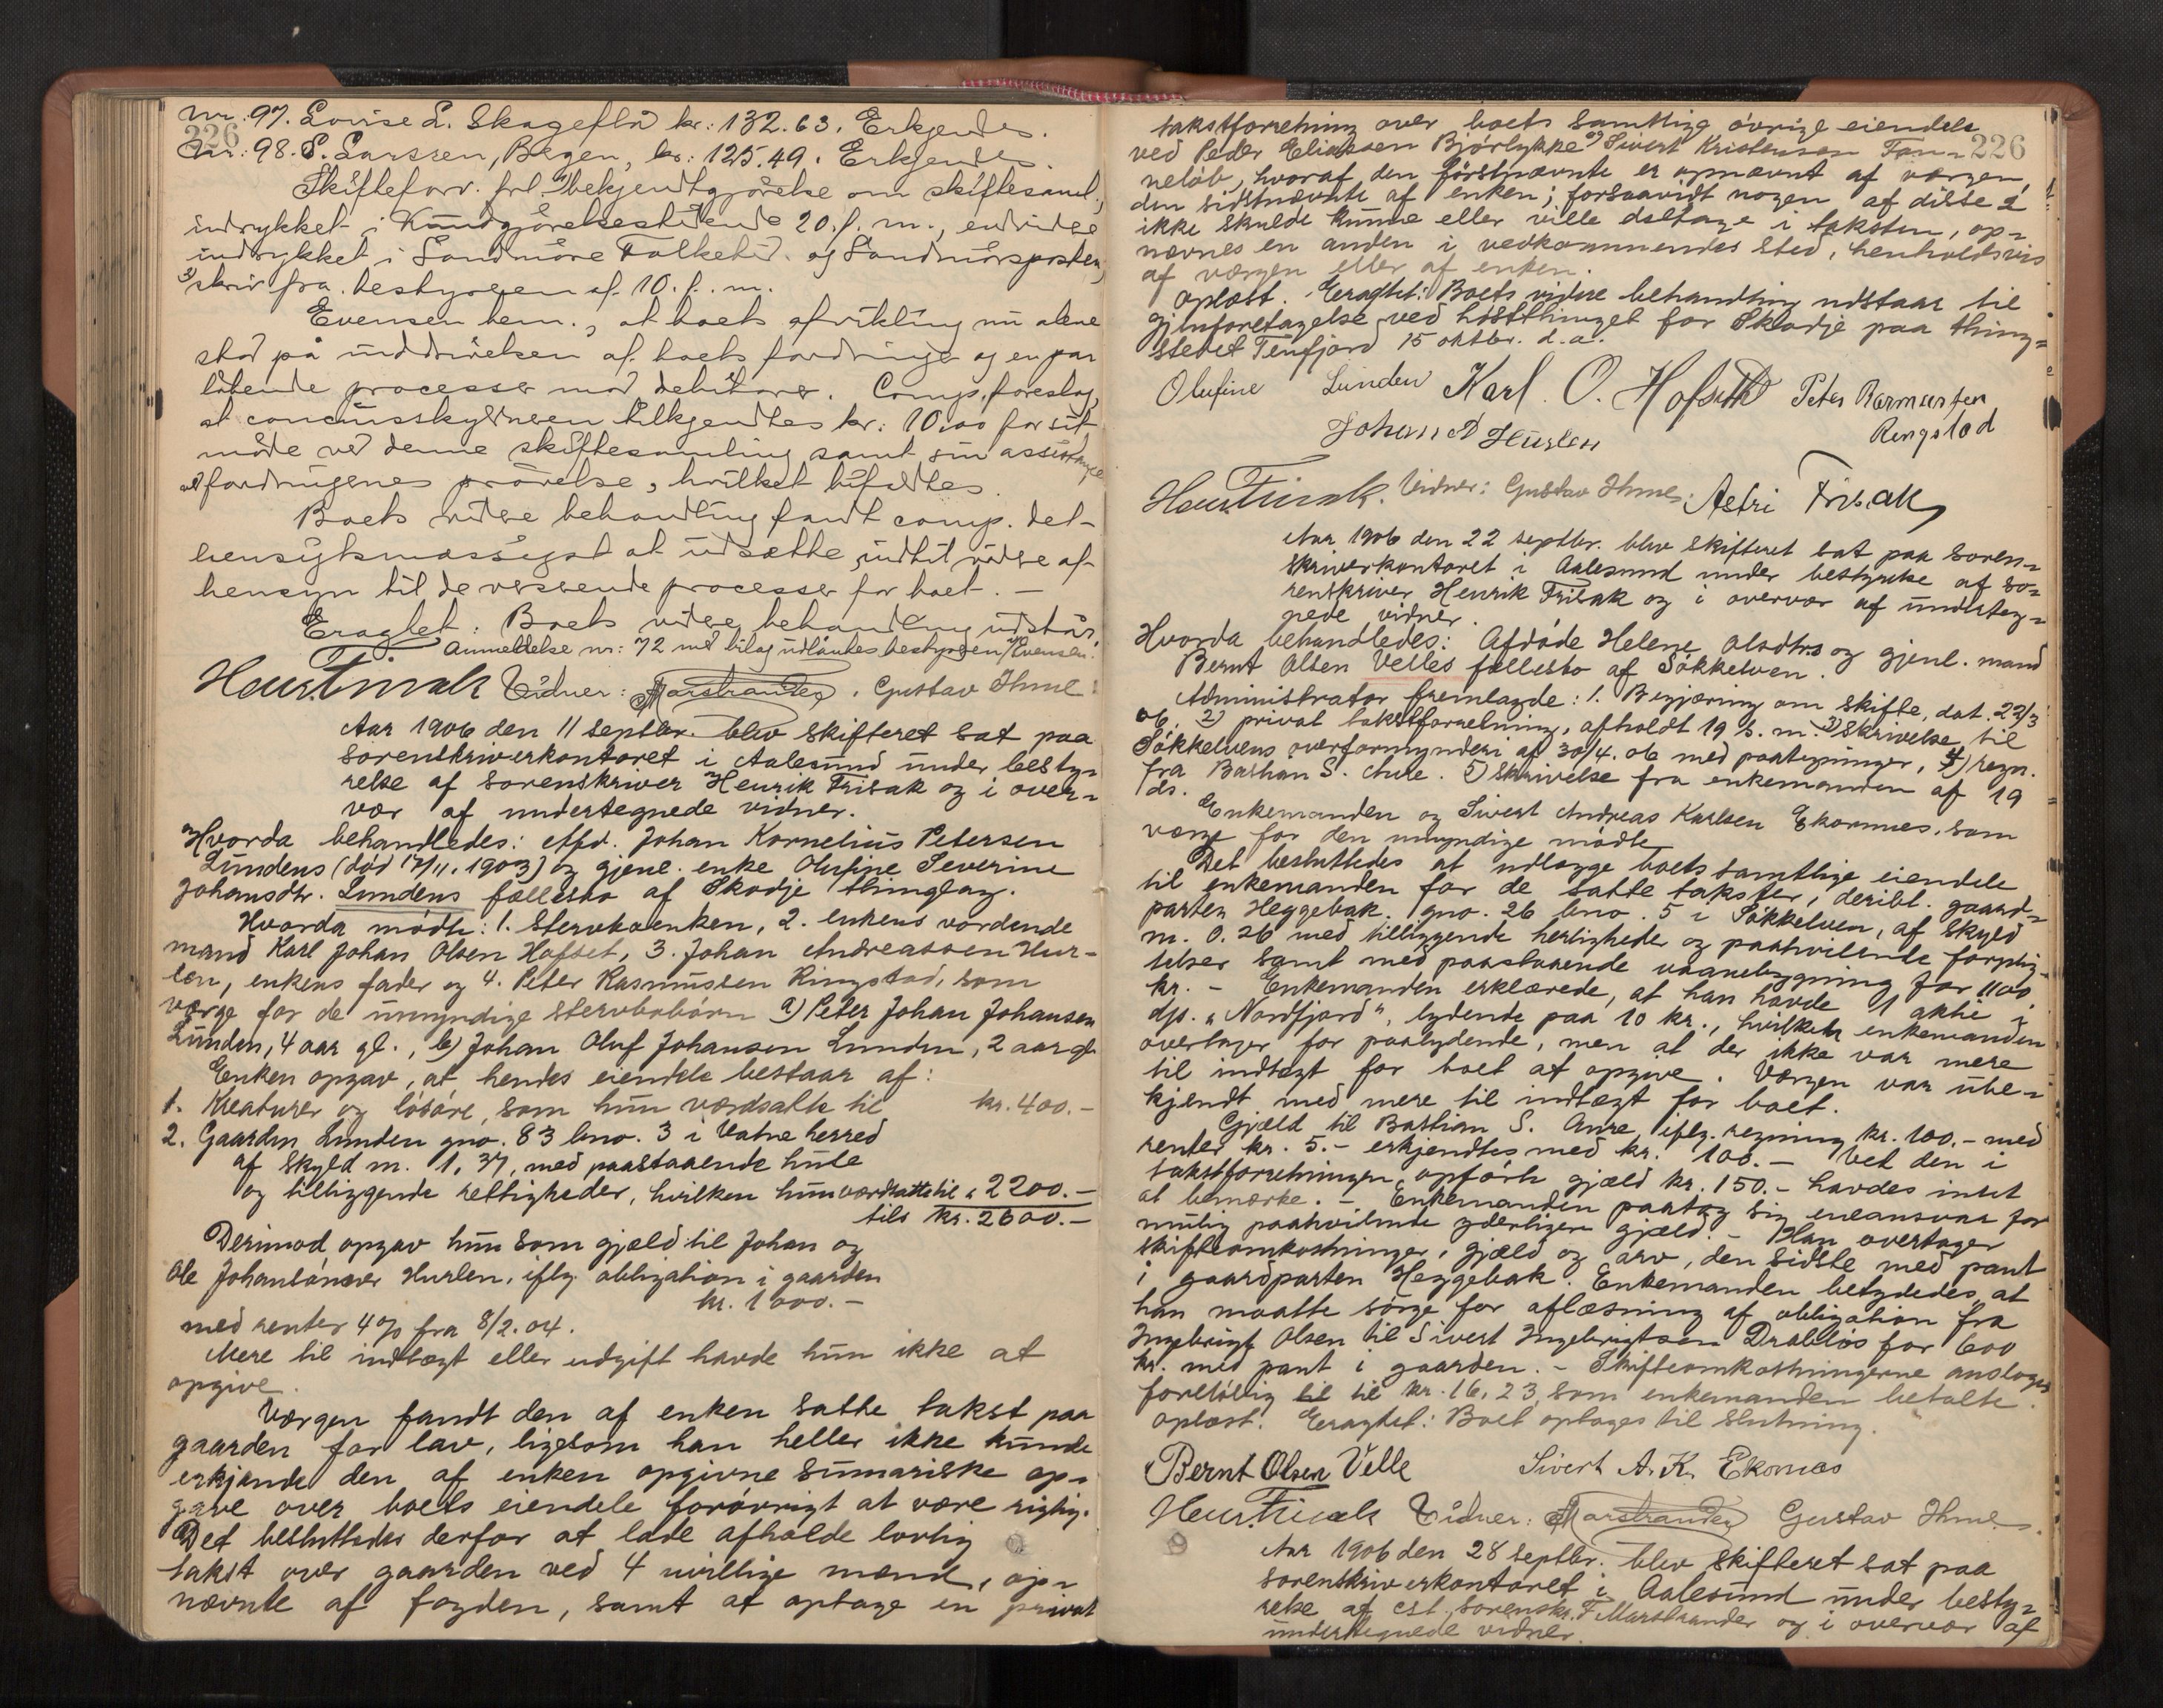 226
Nr.: 97. Lovise L. Skageflå kr.: 132.63. Erkjendes.
Nr.: 98. P. Larssen, Bergen, kr.: 125.49. Erkjendes.
Skifteforv. frl. 1) bekjendtgjörelse om skiftesaml.,
indrykket i Kundgjörelsestidende 20. f. m., endvidere
indrykket i Söndmöre Folketid. og Söndmörsposten,
3) skriv fra bestyreren af 10. f. m.
Evensen bem., at boets afvikling nu alene
stod på inddrivelsen af boets fordringer og en par
löbende processer mod debitorer. Comp. foreslog,
at concursskyldneren tilkjendtes kr.: 10.00 for sit
möde ved denne skiftesamling samt sin assistanse
ved fordringenes prövelse, hvilket bifaldtes.
Boets videre behandling fandt comp. det
hensigtsmæssigst at udsætte indtil videre af
hensyn til de verserende processer for boet. —
Eragtet: Boets videre behandling udstår.
Anmeldelse nr: 72 med bilag udlåntes bestyreren Evensen.
Henr. Frisak Vidner: Marstrander. Gustav Ihme.
Aar 1906 den 11 septbr. blev skifteret sat paa
sorenskriverkontoret i Aalesund under besty-
relse af sorenskriver Henrik Frisak og i over-
vær af undertegnede vidner.
Hvorda behandledes: Afd. Johan Kornelius Petersen
Lundens (död 17/11. 1903) og gjenl. enke Olufine Severine
Johansdtr. Lundens fællesbo af Skodje thinglag.
Hvorda mödte: 1. Stervboenken, 2. enkens vordende
mand Karl Johan Olsen Hofset, 3. Johan Andreassen Hur-
len, enkens fader og 4. Peter Rasmussen Ringstad, som
værge for de umyndige stervbobörn a) Peter Johan Johansen
Lunden, 4 aar gl., b) Johan Oluf Johansen Lunden, 2 aar gl.
Enken opgav, at hendes eiendele bestaar af:
1. Kreaturer og lösöre, som hun værdsatte til kr. 400.-
2. Gaarden Lunden gno. 83 bno. 3 i Vatne herred
af skyld m. 1,37, med paastaaende huse
og tilliggende rettigheder, hvilken hun værdsatte til " 2200.-
tils kr. 2600.-
Derimod opgav hun som gjæld til Johan og
Ole Johansönner Hurlen, iflg. obligation i gaarden
kr. 1000.-
med renter 4% fra 8/2. 04.
Mere til indtægt eller udgift havde hun ikke at
opgive.
Værgen fandt den af enken satte takst paa
gaarden for lav, ligesom han heller ikke kunde
erkjende den af enken opgivne sumariske op-
gave over boets eiendele forövrigt at være rigtig.
Det besluttedes derfor at lade afholde lovlig
takst over gaarden ved 4 uvillige mænd, op-
nævnte af fogden, samt at optage en privat
226
takstforretning over boets samtlige övrige eiendele
ved Peder Eliassen Bjørlykke og Sivert Kristensen Ton-
neløb, hvoraf den förstnævnte er opnævnt af værgen,
den sidstnævnte af enken; forsaavidt nogen af disse 2
ikke skulde kunne eller ville deltage i taksten, op-
nævnes en anden i vedkommendes sted, henholdsvis
af værgen eller af enken.
Oplæst. Eragtet: Boets videre behandling udstaar til
gjenforetagelse ved hösthinget for Skodje paa thing-
stedet Tenfjord 15 oktbr. d.a.
Olufine Lunden Karl O. Hofseth Peter Rasmusten
Ringstad
Johan A Hurlen
Henr. Frisak. Vidner: Gustav Ihme. Astri Frisak
Aar 1906 den 22 septbr. blev skifteret sat paa soren-
skriverkontoret i Aalesund under bestyrelse af so-
renskriver Henrik Frisak og i overvær af underteg-
nede vidner.
Hvorda behandledes: Afdöde Helene Olsdtrs og gjenl. mand
Bernt Olsen Velles fællesbo af Sökkelven.
Administrator fremlagde: 1. Begjæring om skifte, dat. 22/3
06, 2) privat takstforretning, afholdt 19 s.m. 3) Skrivelse til
Sökkelvens overformynderi af 30/4. 06 med paategninger, 4) regn.
fra Bastian S. Aure. 5) Skrivelse fra enkemanden af 19
ds.
Enkemanden og Sivert Andreas Karlsen Ekornæs, som
værge for den umyndige mödte.
Det besluttedes at udlægge boets samtlige eiendele
til enkemanden for de satte takster, deribl. gaard-
parten Heggebak. gno. 26 bno. 5 i Sökkelven, af skyld
m. 0.26 med tilliggende herligheder og paahvilende forplig-
telser samt med paastaaende vaanebygning for 1100
kr. - Enkemanden erklærede, at han havde 1 aktie i
dps. "Nordfjord", lydende paa 10 kr., hvilken enkemanden
overtager for paalydende, men at der ikke var mere
til indtægt for boet at opgive. Værgen var ube-
kjendt med mere til indtægt for boet.
Gjæld til Bastian S. Aure, iflg. regning kr. 100.- med
renter kr. 5.- erkjendtes med kr. 100.- Ved den i
takstforretningen opförte gjæld kr. 150.- havdes intet
at bemærke. - Enkemanden paatog sig eneansvar for
mulig paahvilende yderligere gjæld. - Han overtager
skifteomkostninger, gjæld og arv, den sidste med pant
i gaardparten Heggebak. Enkemanden betydedes, at
han maatte sörge for aflæsning af obligation fra
Ingebrigt Olsen til Sivert Ingebrigtsen Drablös for 600
kr. med pant i gaarden. - Skifteomkostningerne ansloges
forelöbig til til kr. 16,23, som enkemanden betalte.
Oplæst. Eragtet: Boet optages til slutning.
Bernt Olsen Velle Sivert A. K. Ekornæs
Henr. Frisak Vidner: Marstrander Gustav Ihme.
Aar 1906 den 28 septbr. blev skifteret sat paa
sorenskriverkontoret i Aalesund under besty-
relse af cst. sorenskr. F Marstrander og i overvær af
undertegnede vidner.